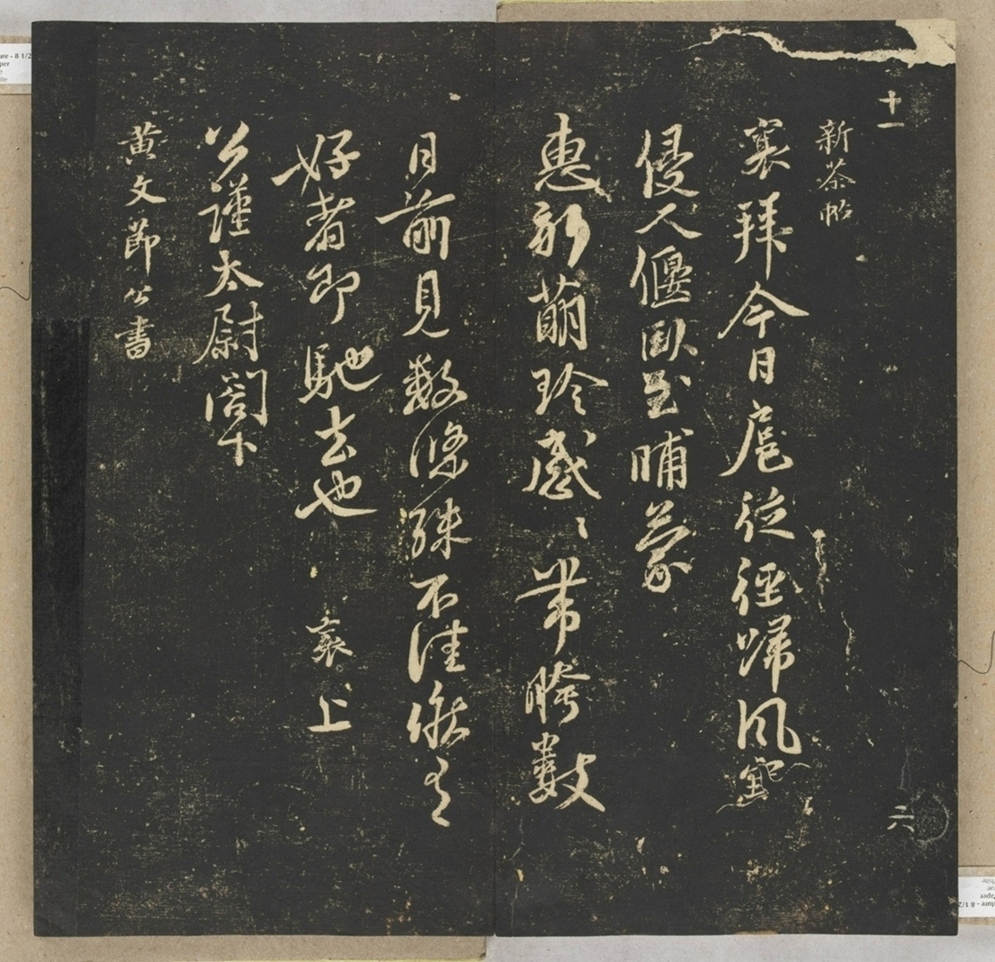 十一
新茶帖
襄拜今日扈從徑歸風寒
侵人偃臥至晡蒙
惠新萌珍感〻帶胯數
日前見數條殊不佳候有
好者即馳去也 襄上
公謹太尉閣下
黃文節公書
六